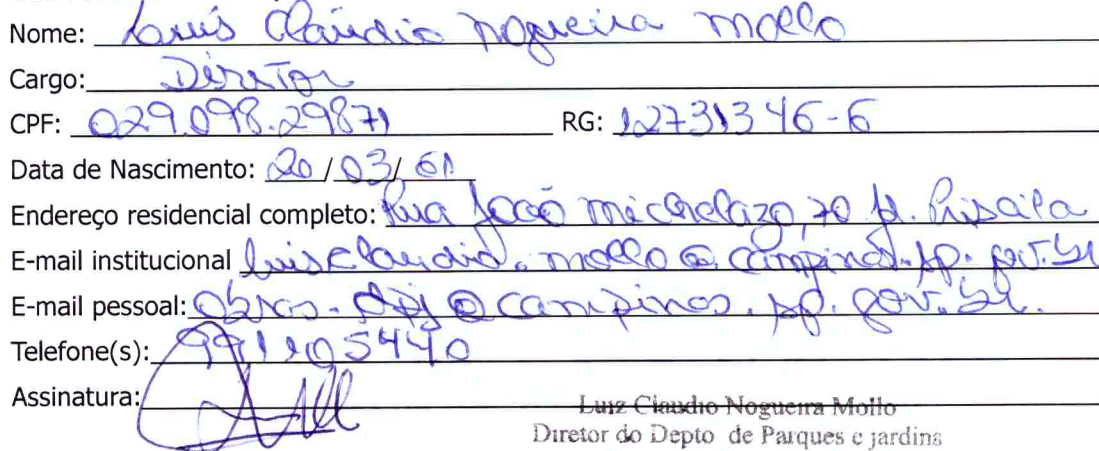 Nome: Luis Claudio Nogueira Mollo
Cargo: Diretor
CPF: 029.098.29871 RG: 12731346-6
Data de Nascimento: 20/03/61
Endereço residencial completo: Rua João Michelazo, 70 Jd. Priscila
E-mail institucional luisclaudio.mollo@campinas.sp.gov.br
E-mail pessoal: obras.dpj@campinas.sp.gov.br.
Telefone(s): 991105440
Assinatura:
Luiz Claudio Nogueira Mollo
Diretor do Depto de Parques e jardins